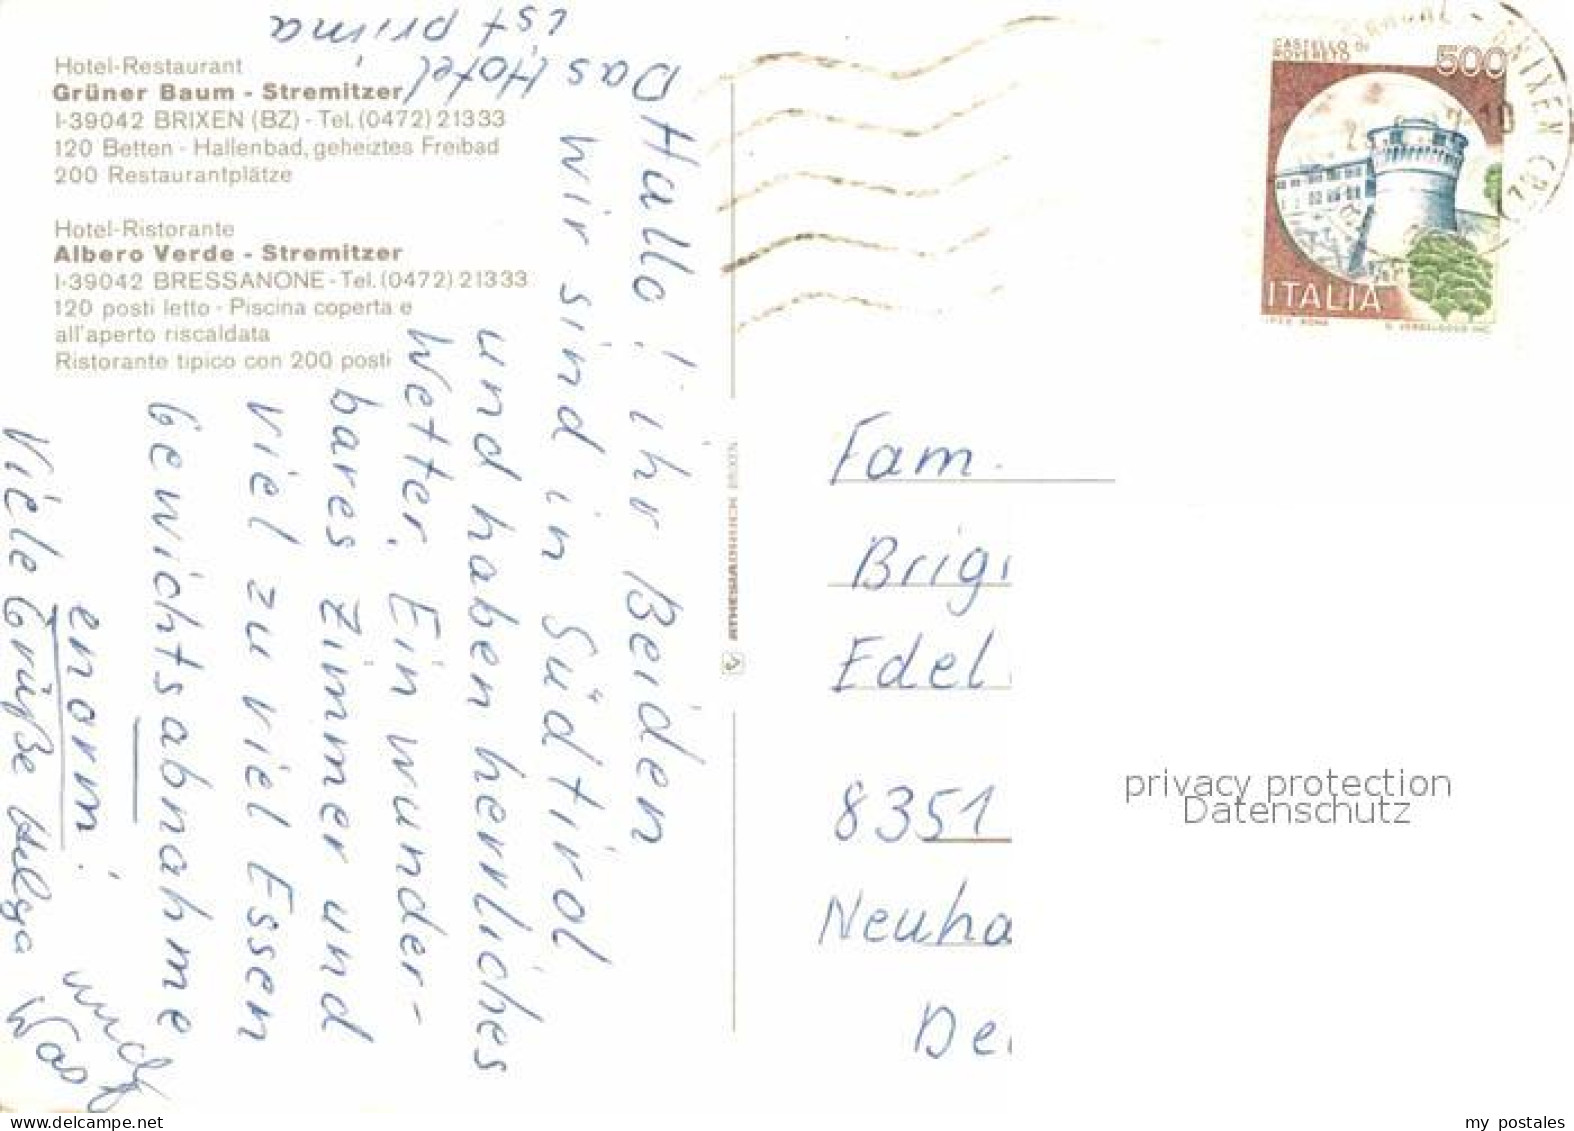 Hotel-Restaurant
Grüner Baum - Stremitzer
I-39042 BRIXEN (BZ) - Tel. (0472) 21333
120 Betten - Hallenbad, geheiztes Freibad
200 Restaurantplätze
Hotel-Ristorante
Albero Verde - Stremitzer
I-39042 BRESSANONE - Tel. (0472) 21333
120 posti letto - Piscina coperta e
all'aperto riscaldata
Ristorante tipico con 200 posti
Hallo! ihr Beiden
wir sind in Südtirol
und haben herrliches
Wetter. Ein wunder-
bares Zimmer und
viel zu viel Essen
Gewichtsabnahme
enorm.
Viele Grüße Helga
und
Das Hotel
ist prima
ATHESIADRUCK BOZEN
CASTELLO DI
ROVERETO
500
ITALIA
I.P.Z.S. ROMA
BRIXEN
Fam.
Brigi
Edel
8351
Neuha
De
privacy protection
Datenschutz
my postales